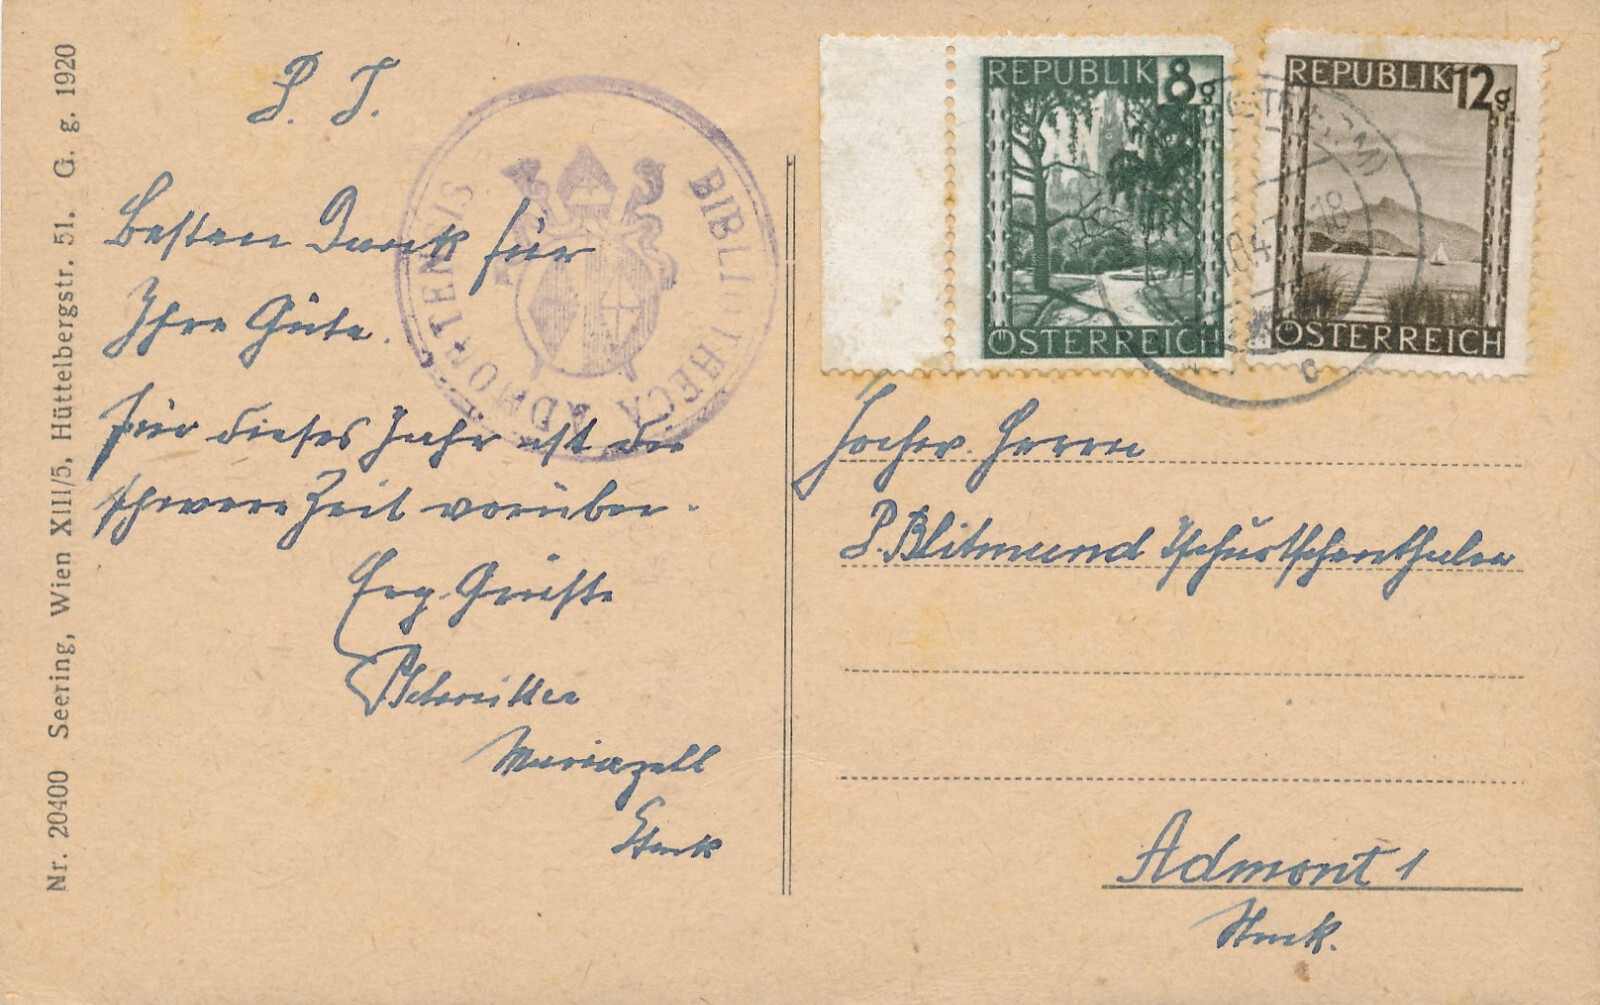 Nr. 20400 Seering, Wien XIII/5, Hüttelbergstr. 51. G. g. 1920
P. T.
Besten Dank für
Ihre Güte.
Für dieses Jahr ist die
schwere Zeit vorüber.
Erg. Grüsse
Mariazell
Stmk
BIBLIOTHECA ADMONTENSIS
REPUBLIK 8g
ÖSTERREICH
REPUBLIK 12g
ÖSTERREICH
Hochw. Herrn
P. Blitmund Tschurtschenthaler
Admont 1
Stmk.